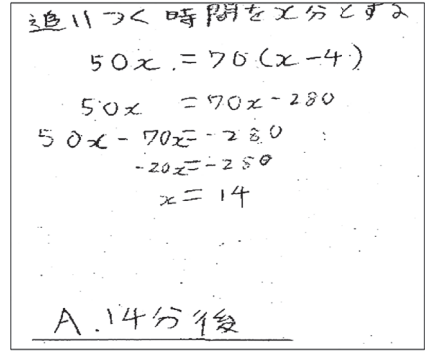 追いつく時間をx分とする
50x = 70(x-4)
50x = 70x-280
50x-70x=-280
-20x=-280
x=14
A.14分後